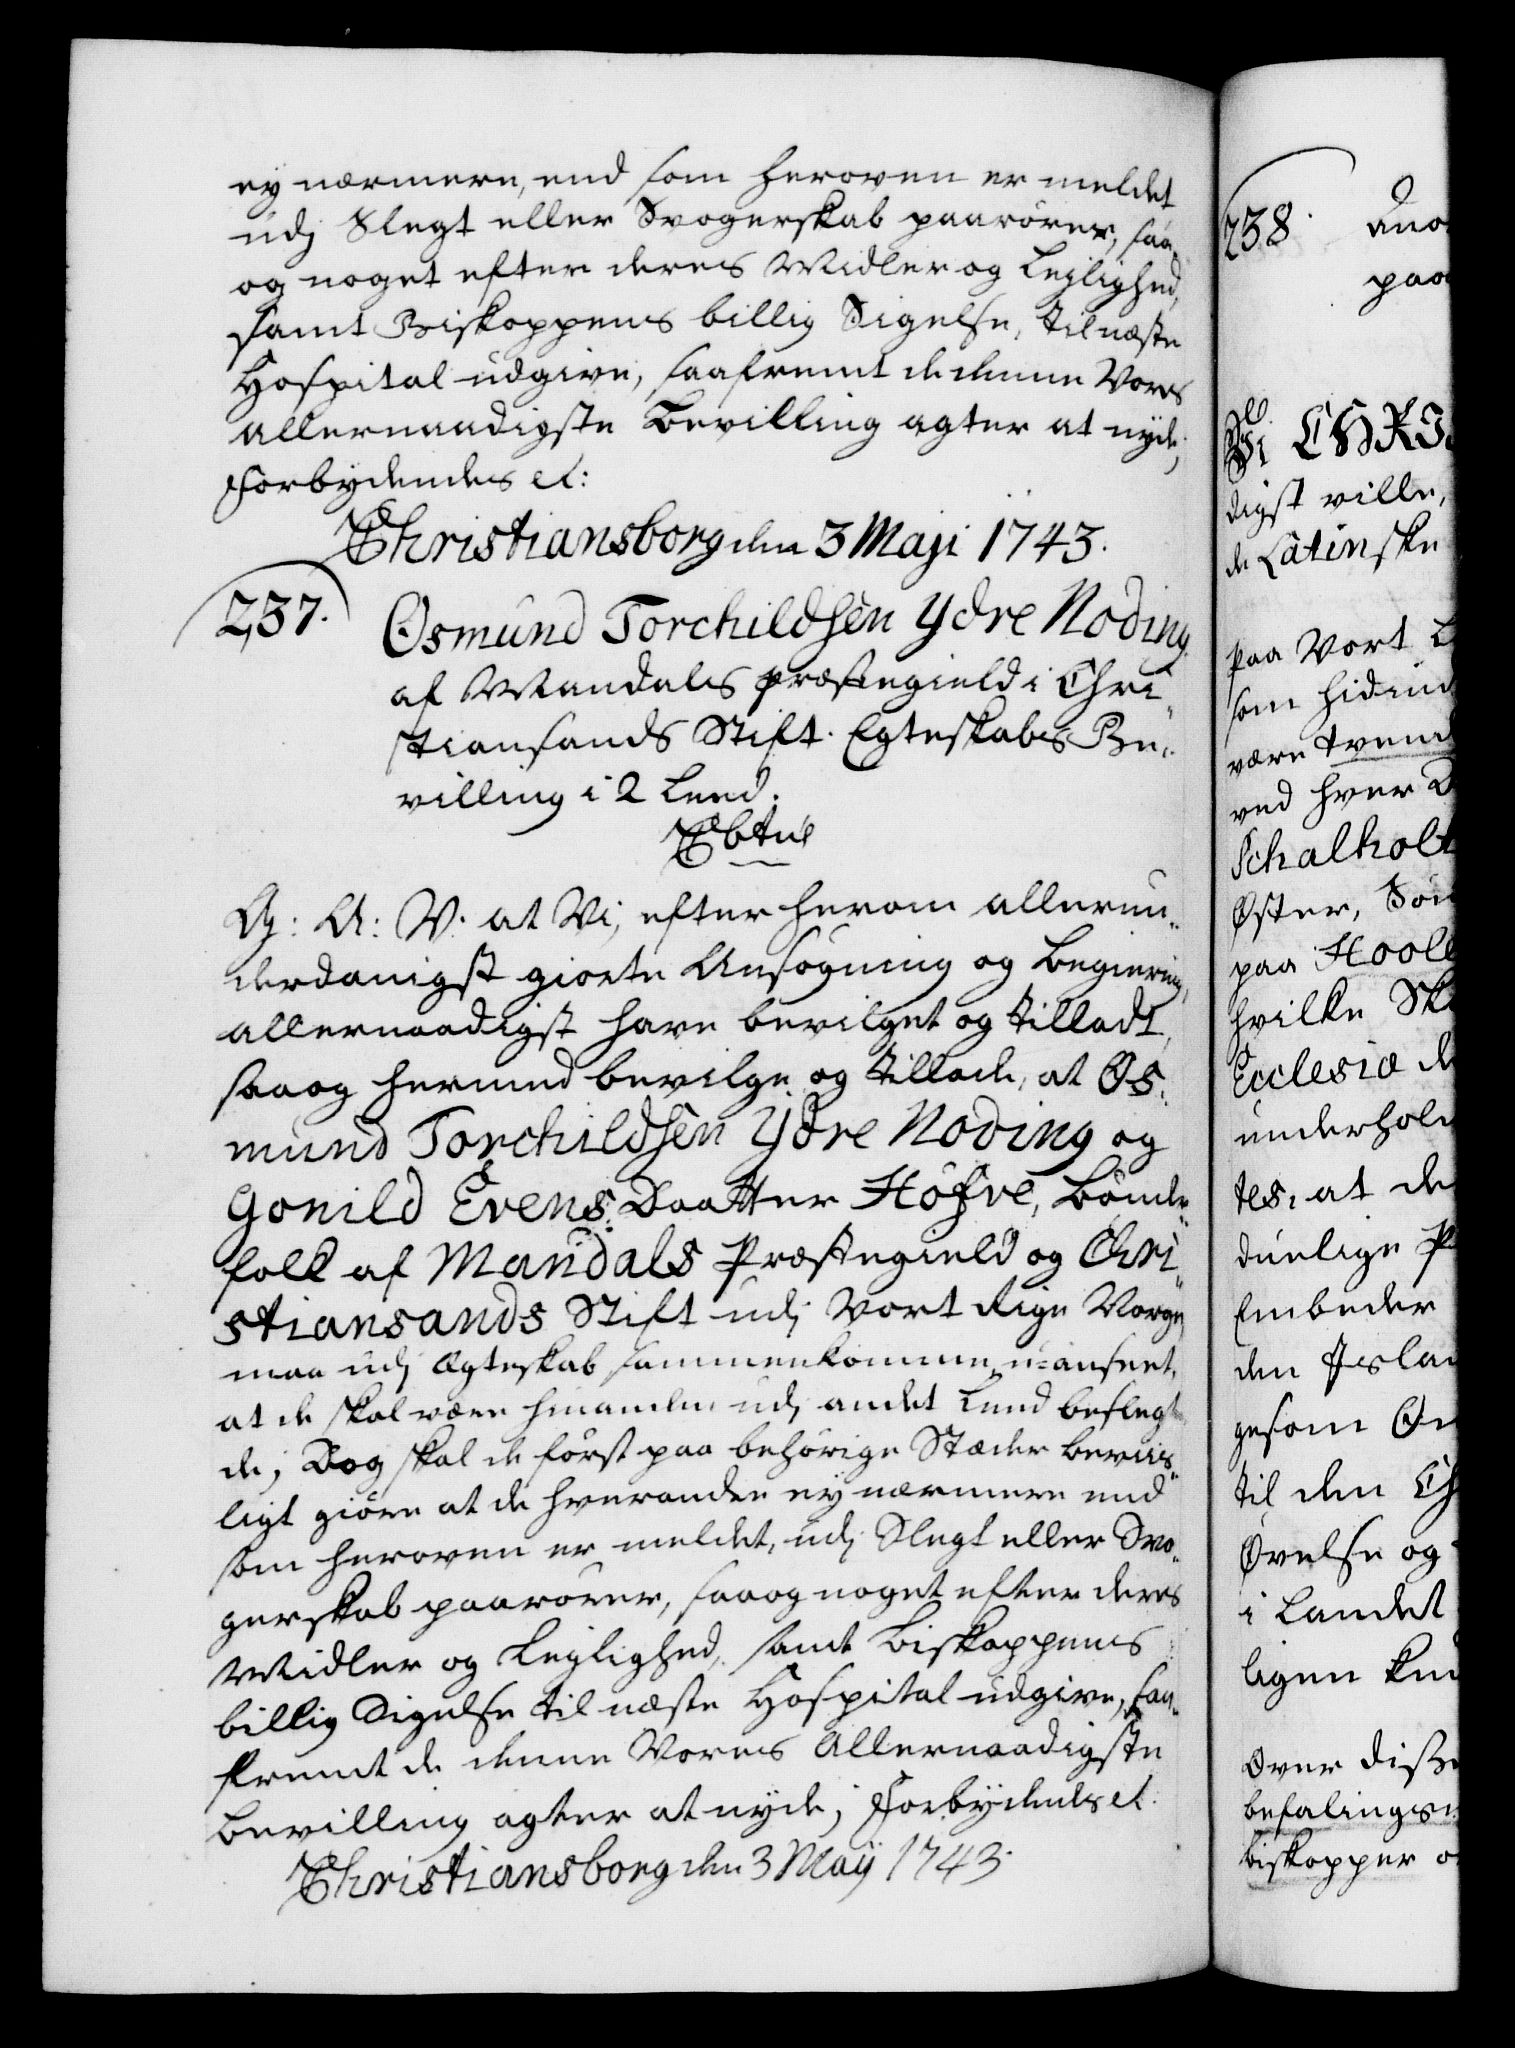 ey nærmere, end som heroven er meldet
udj Slegt eller Svogerskab paarörer, saa
og noget efter deres Midler og Lejlighed,
samt Biskoppens billig Sigelse, til næste
Hospital udgive, saafremt de denne Vores
allernaadigste Bevilling agter at nyde,
Forbydendes etc:
Christiansborg den 3 Maji 1743.
237.
Osmund Torchildsen Ydre Noding
af Mandals Præstegield i Chri-
stiansands Stift. Egteskabs Be-
villing i 2 Leed.
G: A: V. at Vi, efter herom allerun-
derdanigst giorte Ansögning og Begiering,
allernaadigst have bevilget og tilladt,
saaog hermed bevilge og tillade, at Os-
mund Torchildsen Ydre Noding og
Gonild Evens Daatter Höfve, Bönder-
folk af Mandals Præstegield og Chri-
stiansands Stift udj Vort Rige Norge,
maa udj Ægteskab sammenkomme, u-anseet,
at de skal være hinanden udj andet Leed beslegte-
de; Dog skal de först paa behörige Stæder beviis-
ligt giöre at de hverandre ey nærmere end
som heroven er meldet, udj Slegt eller Svo-
gerskab paarörer, saaog noget efter deres
Midler og Lejlighed, samt Biskoppens
billig Sigelse til næste Hospital udgive, saa-
fremt de denne Vores Allernaadigste
Bevilling agter at nyde; Forbydendes etc.
Christiansborg den 3 Maij 1743.
238.
paa
Vi CHRI
digst ville,
de Latinske
paa Vort
som hidind
være tvend
ved hver
Schalholt
Öster,
paa Hool
hvilke
Ecclesiæ de
underhold
tes, at de
duelige
Embeder
den Jslan
gesom
til den Ch
Övelse og
i Landet
ligen
Over disse
befalings
biskopper